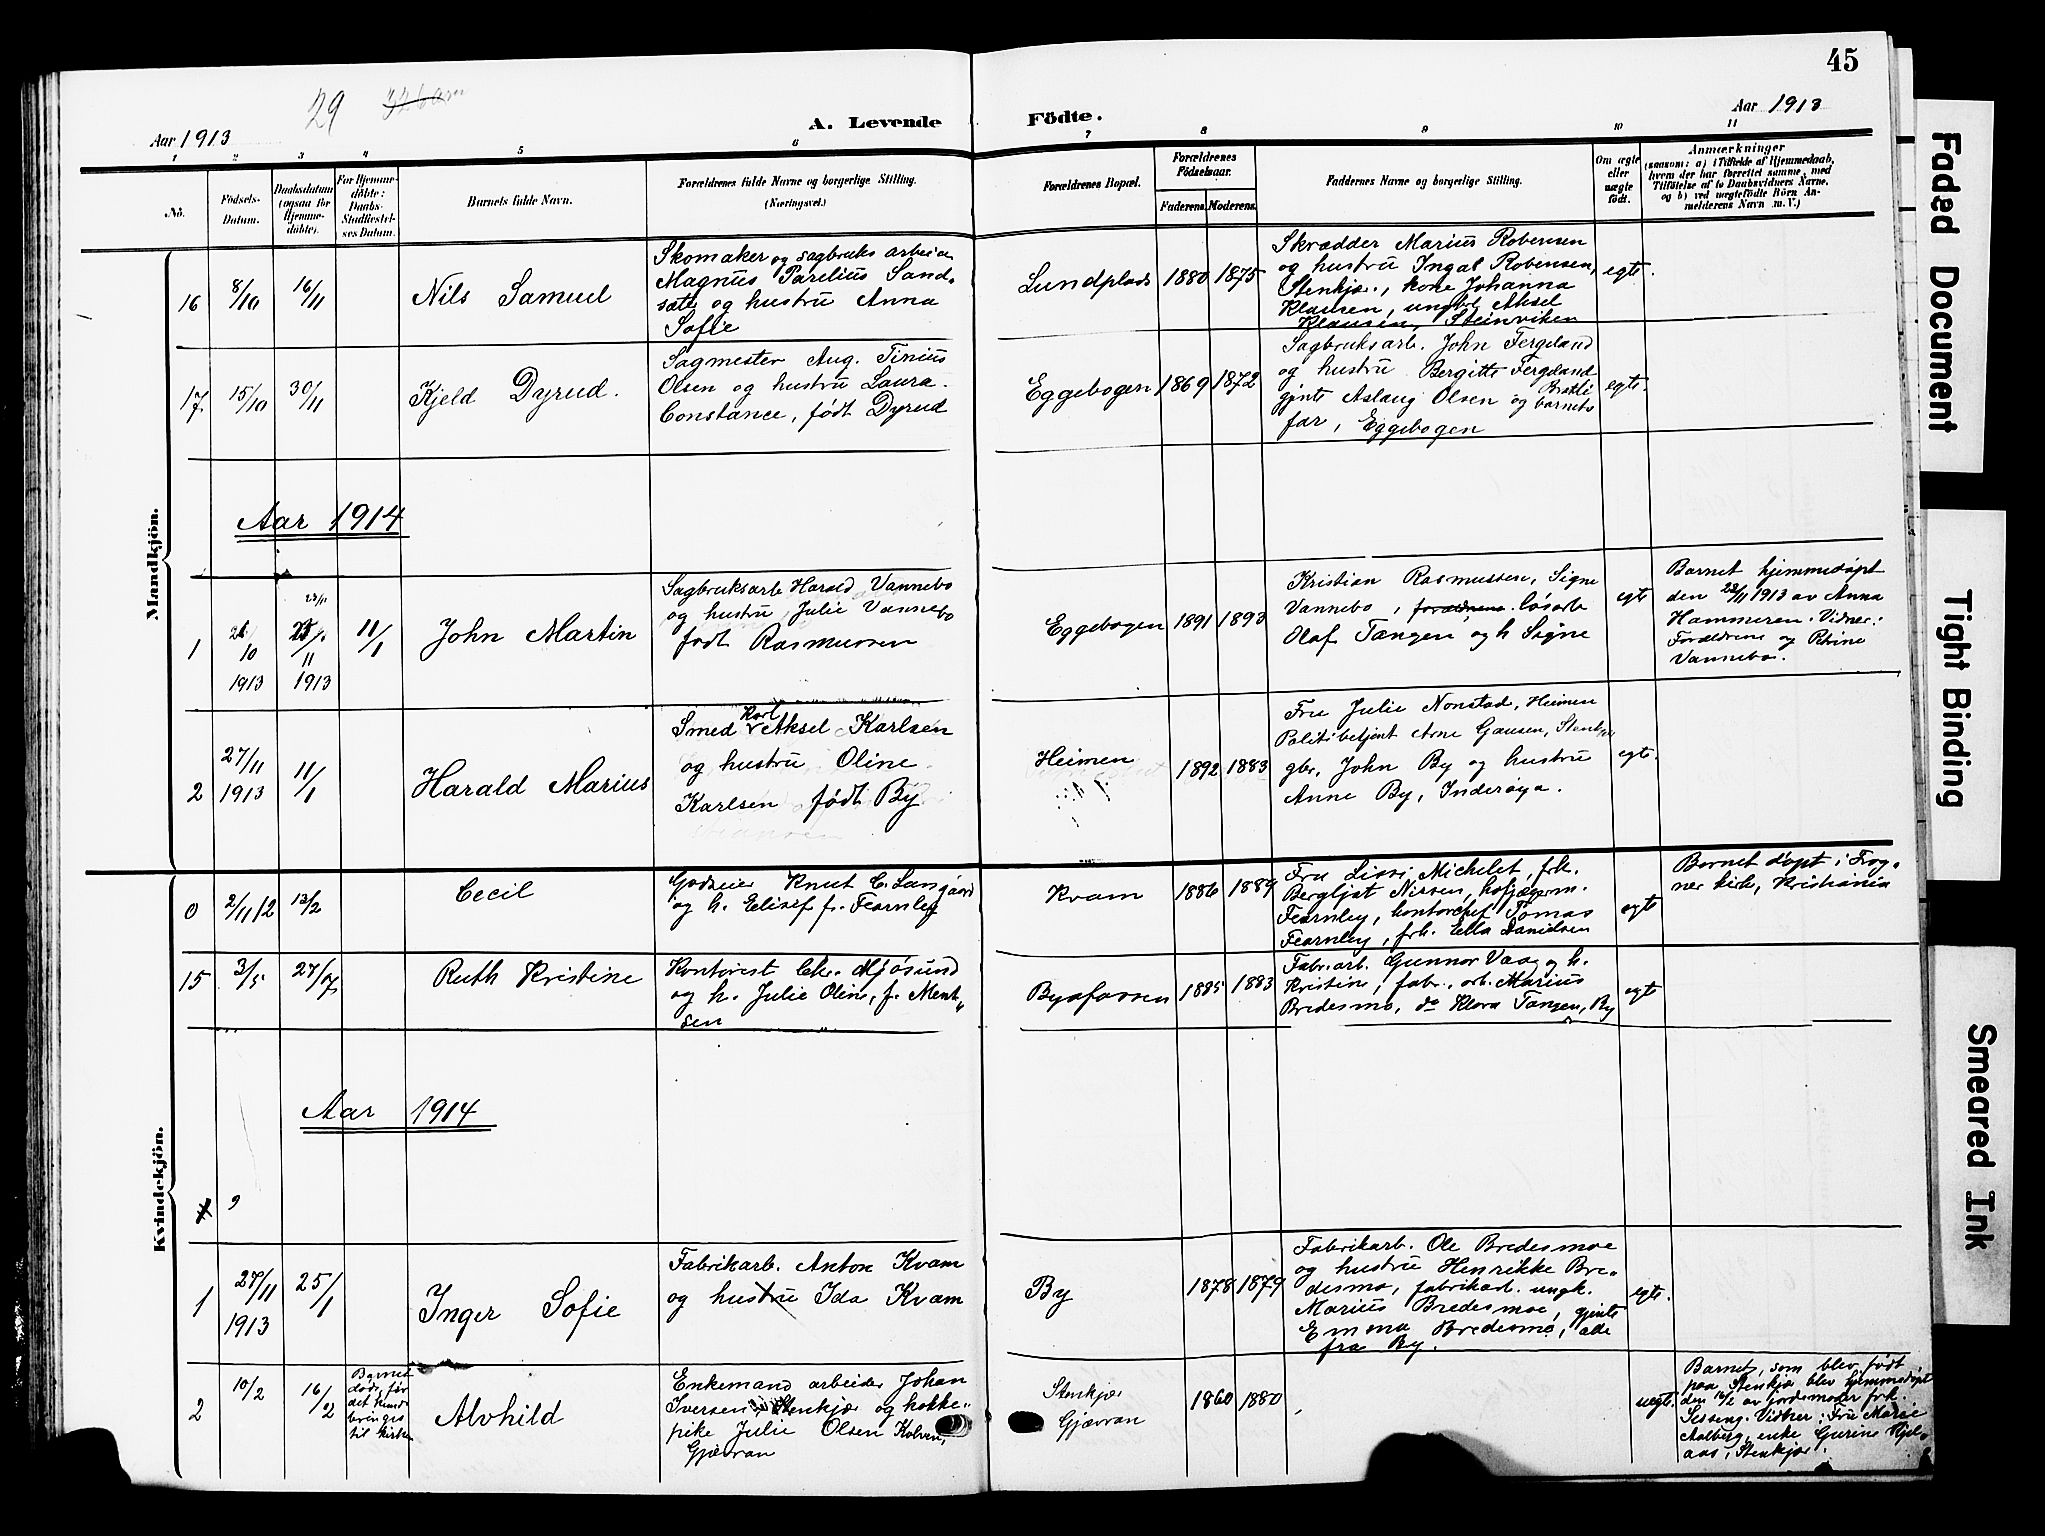 45
29
Aar 1913
A. Levende
Födte.
Aar 1913
1
2
3
4
5
6
7
8
9
10
11
No.
Födsels-
Datum.
Daabsdatum
(ogsaa for
Hjemme-
döbte).
For Hjemme-
döbte:
Daabs-
Stadfæstel-
ses Datum.
Barnets fulde Navn.
Forældrenes fulde Navne og borgerlige Stilling.
(Næringsvei.)
Forældrenes Bopæl.
Forældrenes
Födselsaar.
Faderens.
Moderens.
Faddernes Navne og borgerlige Stilling.
Om ægte
eller
uægte
født.
Anmærkninger
(saasom: a) i Tilfælde af Hjemmedaab,
hvem der har forrettet samme, med
Tilföielse af to Daabsvidners Navne,
og b) ved uægtefödte Börn An-
melderens Navn m. V.)
Mandkjön.
16
8/10
16/11
Nils Samuel
Skomaker og sagbruks arbeia
Magnus Parelius Sand-
sæte og hustru Anna
Sofie
Lundplads
1880
1875
Skrædder Marius Robersen
og hustru Ingal Robensen,
Stenkjær, kone Johanna
Klausen, ungkl Aksel
Klausen, Steinviken
egte.
17
15/10
30/11
Kjeld Dyrud.
Sagmester Aug. Tinius
Olsen og hustru Laura
Constance, født Dyrud
Eggebogen
1869
1872
Sagbruksarb. John Fergeland
og hustru Bergitte Fergeland
gjente Aslaug Olsen og barnets
far, Eggebogen
egte.
Aar 1914
1
10
1913
23/11
11
1913
11/1
John Martin
Sagbruksarb Harald Vannebo
og hustru Julie Vannebo
født Rasmussen
Eggebogen
1891
1893
Kristian Rasmussen, Signe
Vannebo, forældrene. løsarb
Olaf Tangen og h Signe
egte
Barnet hjemmedøpt
den 23/11 1913 av Anna
Hammeren. Vidner:
Forældrene og Petrine
Vannebo.
2
27/11
1913
11/1
Harald Marius
Smed Karl Aksel Karlsen
og hustru Oline
Karlsen født By
Heimen
1892
1883
Fru Julie Nonstad, Heimen
Politibetjent Arne Gausen, Stenkjær
gbr. John By og hustru
Anne By, Inderøya.
egte.
Kvindekjön.
0
2/11 12
13/2
Cecil
Godseier Knut C. Langaard
og h. Elisef f. Fearnley
Kvam
1886
1889
Fru Lissi Michelet, frk.
Bergljot Nissen, hofjægerm.
Fearnley, kontorchef Tomas
Fearnley, frk. Ella Danidsen
egte
Barnet døpt i Frog-
ner kirke, Kristiania
15
3/5
27/7
Ruth Kristine
Kontorist Chr. Mjøsund
og h. Julie Oline, f. Ment-
sen
Byafossen
1885
1883
Fabr.arb. Gunnar Vaag og h.
Kristine, fabr. arb. Marius
Bredesmo, do Klara Tangen, By
egte
Aar 1914
1
27/11
1913
25/1
Inger Sofie
Fabrikarb. Anton Kvam
og hustru Ida Kvam
By
1878
1879
Fabrikarb. Ole Bredesmoe
og hustru Henrikke Bre-
desmo, fabrikarb. ungk.
Marius Bredesmoe, gjente
Emma Bredesmo, alle
fra By.
egte.
2
10/2
16/2
Barnet
døde, før
det kunde
bringes
til kirken
Alvhild
Enkemand arbeider Johan
Iversen, Stenkjær og hokke-
pike Julie Olsen Kolven,
Gjævran
Stenkjær
Gjævran
1860
1880
uegte.
Barnet, som blev født
paa Stenkjær blev hjemmedøpt
den 16/2 av jordemoder frk.
Sesseng. Vidner: Fru Marie
Aalberg, enke Gurine Hjel-
aas, Stenkjær.
Faded Document
Tight Binding
Smeared Ink